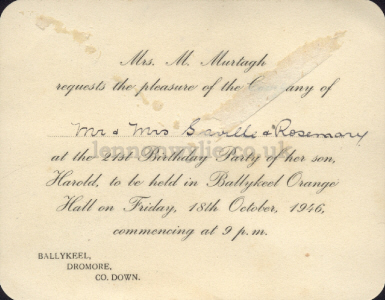 Mrs. M. Murtagh
requests the pleasure of the Company of
Mr & Mrs Saville & Rosemary
lennonwylie.co.uk
at the 21st Birthday Party of her son,
Harold, to be held in Ballykeel Orange
Hall on Friday, 18th October, 1946,
commencing at 9 p.m.
BALLYKEEL,
DROMORE,
CO. DOWN.